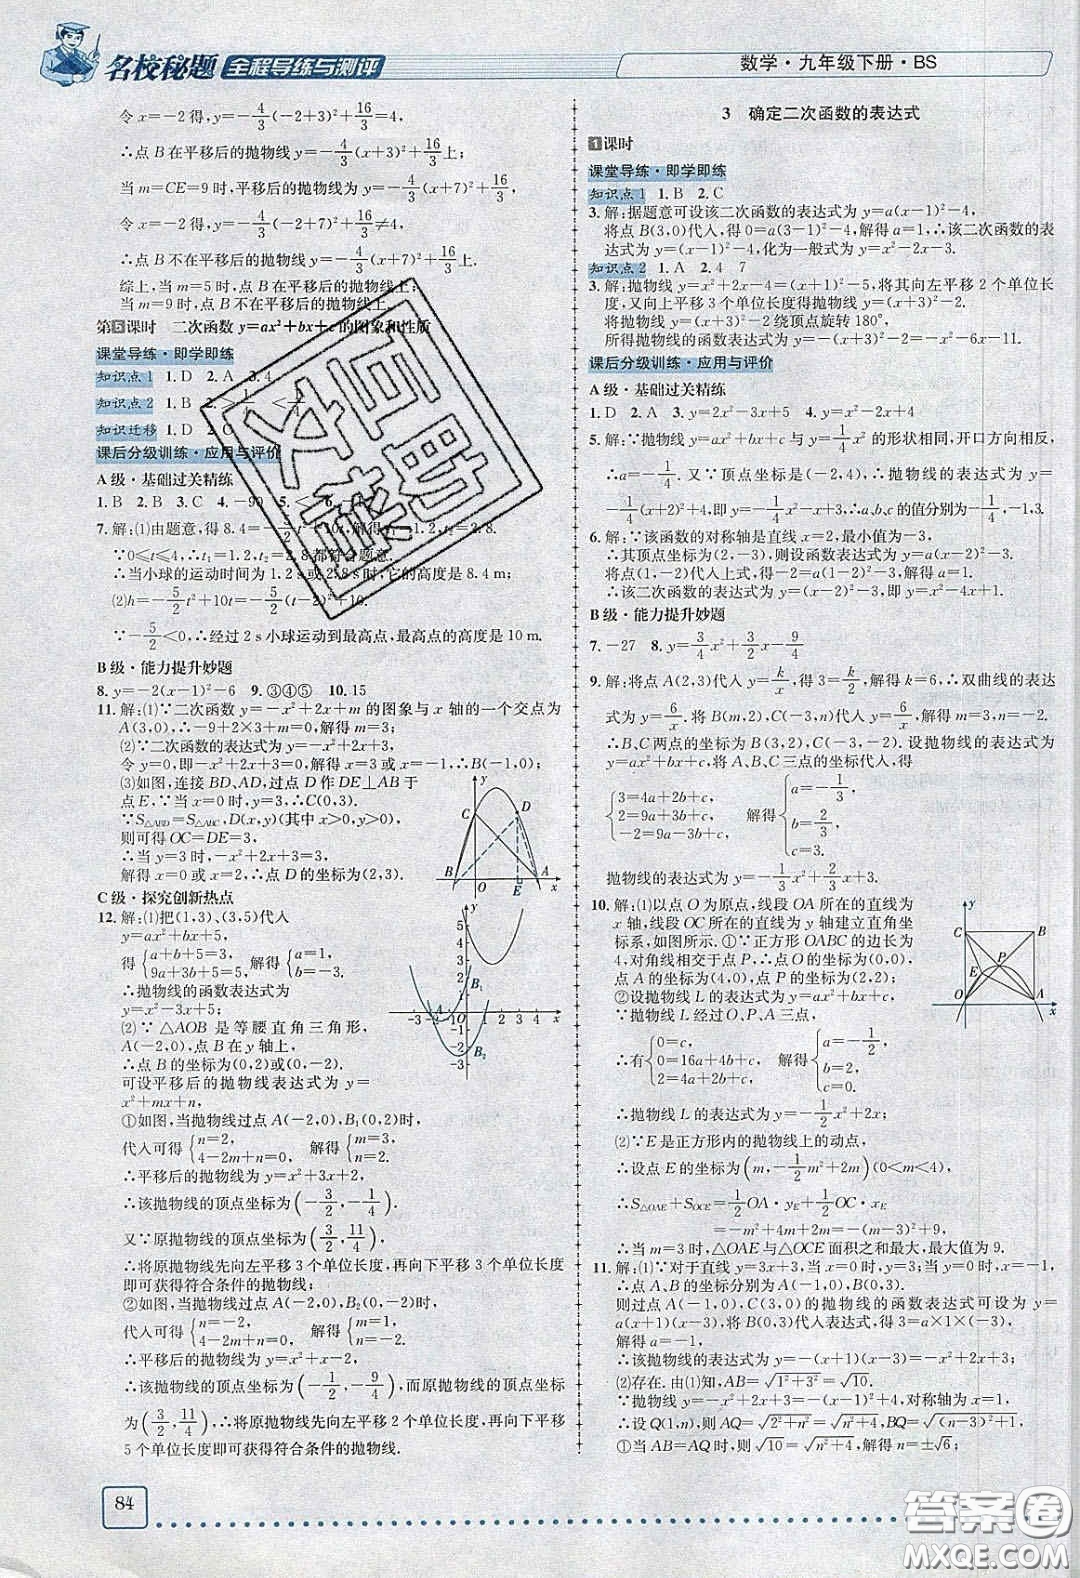 名校秘题 全程导练与测评
数学·九年级下册·BS
令x=-2得,y=-4/3(-2+5)²+16/3=4,
∴点B在平移后的抛物线y=-4/3(x+5)²+16/3上;
当m=CE=9时,平移后的抛物线为y=-4/3(x+7)²+16/3,
令x=-2得,y=-4/3(-2+7)²+16/3≠4,
∴点B不在平移后的抛物线y=-4/3(x+7)²+16/3上.
综上,当m=5时,点B在平移后的抛物线上;
当m=9时,点B不在平移后的抛物线上.
第5课时 二次函数y=ax²+bx+c的图象和性质
课堂导练·即学即练
知识点1 1.D 2.A 3.4
知识点2 1.B
知识迁移 1.D 2.C
课后分级训练·应用与评价
A级·基础过关精练
1.B 2.B 3.C 4.-90 5.<
7.解:(1)由题意,得8.4=-5/2t²+10t,解得t₁=1.2,t₂=2.8.
∵0≤t≤4,∴t₁=1.2,t₂=2.8都符合题意.
∴当小球的运动时间为1.2s或2.8s时,它的高度是8.4m;
(2)h=-5/2t²+10t=-5/2(t-2)²+10.
∵-5/2<0,∴经过2s小球运动到最高点,最高点的高度是10m.
B级·能力提升妙题
8.y=-2(x-1)²-6 9.③④⑤ 10.15
11.解:(1)∵二次函数y=-x²+2x+m的图象与x轴的一个交点为
A(3,0),∴-9+2×3+m=0,解得m=3;
(2)∵二次函数的表达式为y=-x²+2x+3,
令y=0,即-x²+2x+3=0,∴B(-1,0);
(3)如图,连接BD、AD,过点D作DE⊥AB于
点E,∵当x=0时,y=3,∴C(0,3).
∵S△ABD=S△ABC,D(x,y)(其中x>0,y>0),
则可得OC=DE=3,
∴当y=3时,-x²+2x+3=3,
解得x=0或x=2,∴点D的坐标为(2,3).
y
C D
B O E A x
C级·探究创新热点
12.解:(1)把(1,3)、(3,5)代入
y=ax²+bx+5,
得{a+b+5=3, 9a+3b+5=5, 解得{a=1, b=-3.
∴抛物线的函数表达式为
y=x²-3x+5;
(2)∵△AOB是等腰直角三角形,
A(-2,0),点B在y轴上,
∴点B的坐标为(0,2)或(0,-2).
可设平移后的抛物线表达式为y=
x²+mx+n,
①如图,当抛物线过点A(-2,0),B₁(0,2)时,
代入可得{n=2, 4-2m+n=0, 解得{m=3, n=2.
∴平移后的抛物线为y=x²+3x+2,
∴该抛物线的顶点坐标为(-3/2,-1/4),
又∵原抛物线的顶点坐标为(3/2,11/4),
∴将原抛物线先向左平移3个单位长度,再向下平移3个单位长度
即可获得符合条件的抛物线;
②如图,当抛物线过A(-2,0),B₂(0,-2)时,
代入可得{n=-2, 4-2m+n=0, 解得{m=1, n=-2.
∴平移后的抛物线为y=x²+x-2,
∴该抛物线的顶点坐标为(-1/2,-9/4),而原抛物线的顶点坐标
为(3/2,11/4),∴将原抛物线先向左平移2个单位长度,再向下平移
5个单位长度即可获得符合条件的抛物线.
84
3 确定二次函数的表达式
1课时
课堂导练·即学即练
知识点1 1.B 2.C
3.解:据题意可设该二次函数的表达式为y=a(x-1)²-4,
将点B(3,0)代入,得0=a(3-1)²-4,解得a=1,∴该二次函数的表
达式为y=(x-1)²-4,化为一般式为y=x²-2x-3.
知识点2 1.A 2.4 7
3.解:抛物线y=x²+2x-4=(x+1)²-5,将其向左平移2个单位
长度,又向上平移3个单位长度得抛物线y=(x+3)²-2.
将抛物线y=(x+3)²-2绕顶点旋转180°,
所得抛物线的函数表达式为y=-(x+3)²-2=-x²-6x-11.
课后分级训练·应用与评价
A级·基础过关精练
1.D 2.A 3.y=2x²-3x+5 4.y=x²-2x+4
5.解:∵抛物线y=ax²+bx+c与y=1/4x²的形状相同,开口方向相反,
∴a=-1/4.又∵顶点坐标是(-2,4),∴抛物线的表达式为y=
-1/4(x+2)²+4,即y=-1/4x²-x+3,∴a,b,c的值分别为-1/4,-1,3.
6.解:∵该函数的对称轴是直线x=2,最小值为-3,
∴其顶点坐标为(2,-3),则设函数表达式为y=a(x-2)²-3.
将点(1,-2)代入上式,得-2=a(1-2)²-3,解得a=1.
∴该二次函数的表达式为y=(x-2)²-3,即y=x²-4x+1.
B级·能力提升妙题
7.-27 8.y=3/4x²+3/2x-9/4
9.解:将点A(2,3)代入y=k/x,得k/2=3,解得k=6,∴双曲线的表达
式为y=6/x.将B(m,2),C(-3,n)代入y=6/x,解得m=3,n=-2.
∴B、C两点的坐标为B(3,2),C(-3,-2).设抛物线的表达式为
y=ax²+bx+c,将A、B、C三点的坐标代入,得
{3=4a+2b+c, 2=9a+3b+c, -2=9a-3b+c, 解得{a=-1/3, b=2/3, c=3.
抛物线的表达式为y=-1/3x²+2/3x+3.
10.解:(1)以点O为原点,线段OA所在的直线为
x轴,线段OC所在的直线为y轴建立直角坐
标系,如图所示.①∵正方形OABC的边长为
4,对角线相交于点P,∴点O的坐标为(0,0),
点A的坐标为(4,0),点P的坐标为(2,2);
②设抛物线L的表达式为y=ax²+bx+c,
∵抛物线L经过O、P、A三点,
∴有{0=c, 0=16a+4b+c, 2=4a+2b+c, 解得{a=-1/2, b=2, c=0.
y
C B
E P
O A x
∴抛物线L的表达式为y=-1/2x²+2x;
(2)∵E是正方形内的抛物线上的动点,
∴设点E的坐标为(m,-1/2m²+2m)(0<m<4),
∴S△OAE+S△OCE=1/2OA·yE+1/2OC·xE
=-m²+4m+2m=-(m-3)²+9,
∴当m=3时,△OAE与△OCE面积之和最大,最大值为9.
11.解:(1)∵对于直线y=3x+3,当x=0时,y=3;当y=0时,x=-1,
∴点A、B的坐标分别为A(-1,0),B(0,3).
则过点A(-1,0)、C(3,0)的抛物线的函数表达式可设为y=
a(x+1)(x-3),将B(0,3)代入,得3=a(0+1)(0-3),
解得a=-1.
∴该抛物线的表达式为y=-(x+1)(x-3)=-x²+2x+3;
(2)存在.由(1)知,AB=√(1²+3²)=√10.
∵抛物线为y=-x²+2x+3=-(x-1)²+4,对称轴为x=1,
∴设Q(1,n),则AQ=√(2²+n²)=√(n²+4),BQ=√((n-3)²+1),
①当AB=AQ时,则√10=√(n²+4),解得n=±√6;
答案圈
MXQE.COM